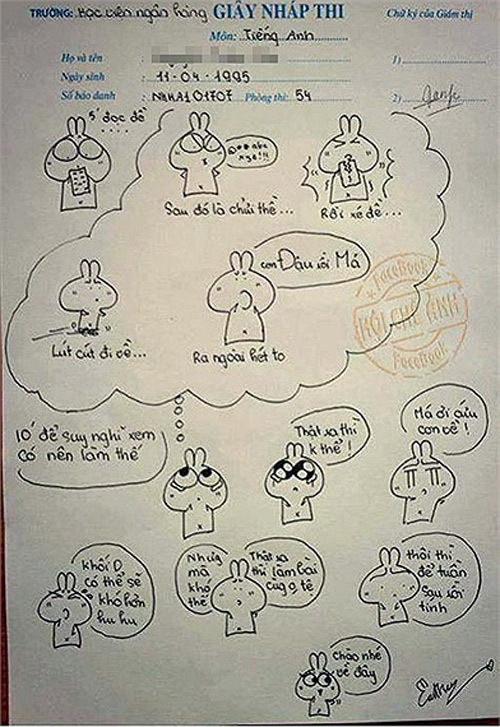 TRƯỜNG: Học viện ngân hàng GIẤY NHÁP THI Chữ ký của Giám thị
Môn: Tiếng Anh
Họ và tên 1)
Ngày sinh 11-04-1995
Số báo danh NHHA101707 Phòng thi: 54 2)
5' đọc đề
....
Sau đó là chửi thề...
Rồi xé đề...
con Đậu rồi Má
Lút cút đi về...
Ra ngoài hét to
FaceBook
HỘI CHẾ ẢNH
FaceBook
10' để suy nghĩ xem
có nên làm thế
Thật ra thì
k thể!
Má ơi cứu
con về!
khối D
có thể sẽ
khó hơn
hu hu
Nhưng
mà
khó
thế
Thật ra
thì làm bài
cũg o tệ
thôi thì
để tuần
sau rồi
tính
Chào nhé
về đây